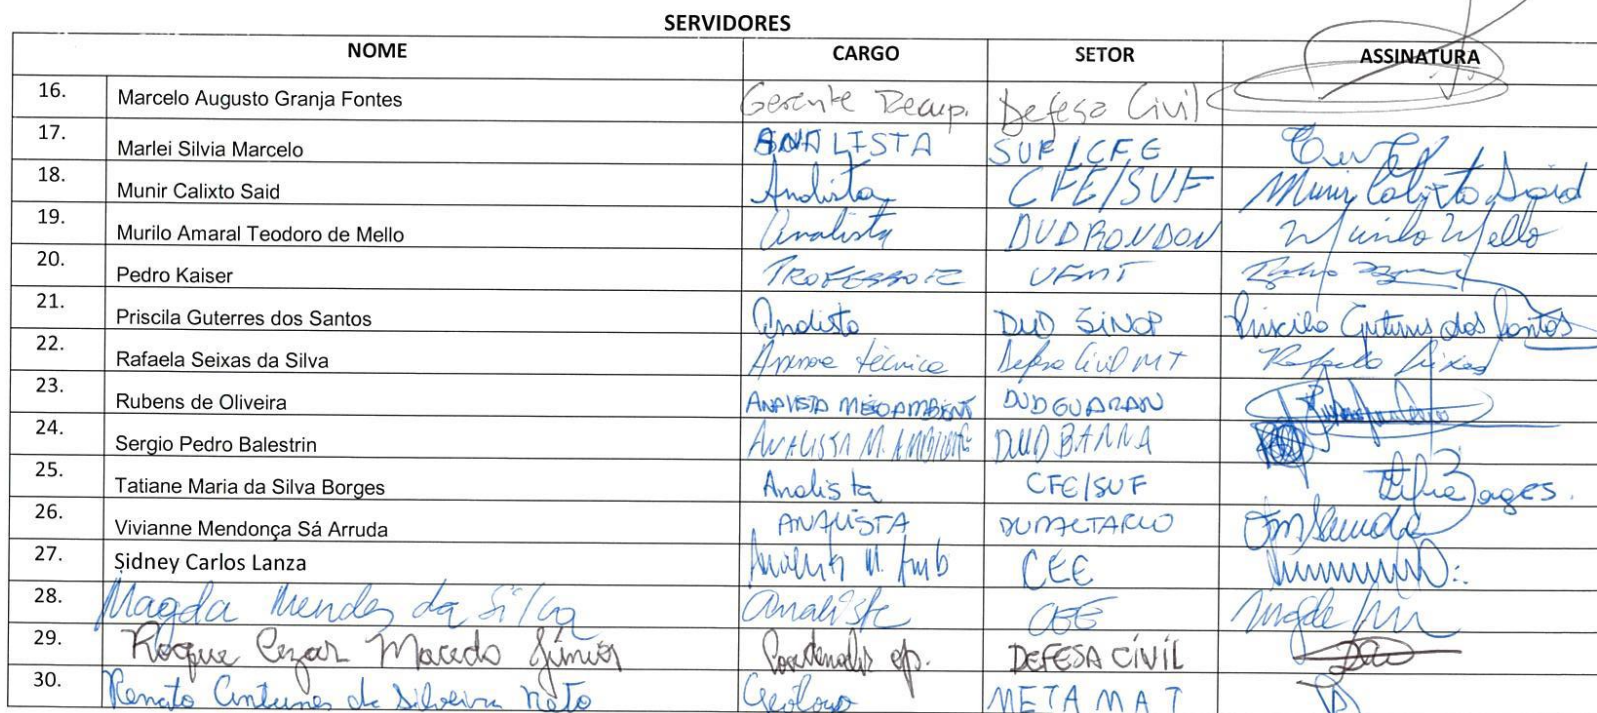 SERVIDORES
NOME CARGO SETOR ASSINATURA
16. Marcelo Augusto Granja Fontes Gerente Recup. Defesa Civil
17. Marlei Silvia Marcelo ANALISTA SUF/CFE
18. Munir Calixto Said Analista CFE/SUF Munir Calixto Said
19. Murilo Amaral Teodoro de Mello analista DUDRONDON Murilo Mello
20. Pedro Kaiser PROFESSOR UFMT
21. Priscila Guterres dos Santos analista DUD SINOP Priscila Guterres dos Santos
22. Rafaela Seixas da Silva técnica Defesa Civil MT Rafaela Seixas
23. Rubens de Oliveira ANALISTA MEIO AMBIENT DUDGUARAN
24. Sergio Pedro Balestrin ANALISTA M. AMBIENTE DUD BARRA
25. Tatiane Maria da Silva Borges Analista CFE/SUF
26. Vivianne Mendonça Sá Arruda ANALISTA
27. Sidney Carlos Lanza Analista M. Amb CEE
28. Magda Mendes da Silva analista CEE
29. Roque Cezar Macedo Júnior DEFESA CIVIL
30. Renato Antunes da Silveira Neto Geólogo METAMAT